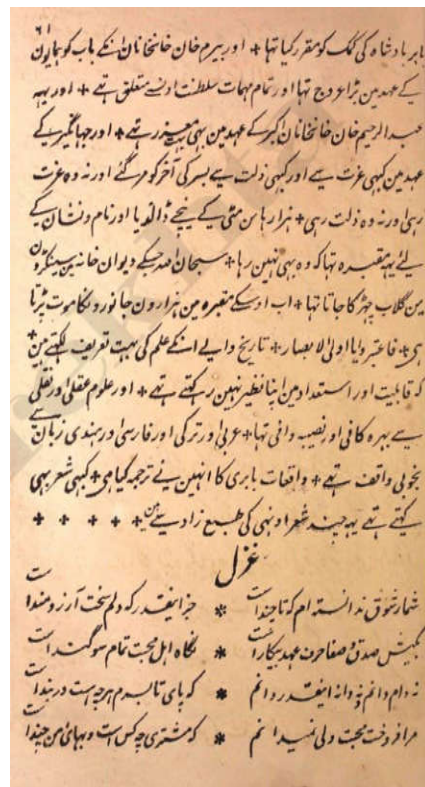 ۶۱
بابر بادشاہ کی کمک کو مقرر کیا تہا + اور بیرم خان خانخانان انکے باپ کو ہمایون
کے عہد مین بڑا عروج تہا اور تمام مہمات سلطنت اونسے متعلق تہے + اور یہہ
عبدالرحیم خان خانخانان اکبر کے عہد مین بہی معزز رہے + اور جہانگیر کے
عہد مین کبہی عزت سے اور کبہی ذلت سے بسر کی آخر کو مر گئے اور نہ وہ عزت
رہی اور نہ وہ ذلت رہی + ہزارہا من مٹی کے نیچے ڈالدیا اور نام و نشان کے
لئے یہہ مقبرہ تہا کہ وہ بہی نہین رہا + سبحان اللہ جسکے دیوان خانہ مین سینکڑون
من گلاب چہڑکا جاتا تہا + اب اوسکے مقبرہ مین ہزارون جانورونکا موت پڑتا
ہی + فاعتبروا یا اولی الابصار + تاریخ والے انکے علم کی بہت تعریف لکہتے ہین +
کہ قابلیت اور استعداد مین اپنا نظیر نہین رکہتے تہے + اور علوم عقلی اور نقلی
سے بہرہ کافی اور نصیبہ وافی تہا + عربی اور ترکی اور فارسی اور ہندی زبان سے
بخوبی واقف تہے + واقعات بابری کا انہین نے ترجمہ کیا ہی + کبہی شعر بہی
کہتے تہے یہہ چند شعر اونہی کی طبع زاد سے ہین + + + + +
غزل
شمار شوق ندانستہ ام کہ تا چند است * جز اینقدر کہ دلم سخت آرزومند است
بکیش صدق و صفا حرف عہد بیکار است * نگاہ اہل محبت تمام سوگند است
نہ دام دانم و نہ دانہ اینقدر دانم * کہ پای تا بسرم ہرچہ است در بند است
مرا فروخت محبت ولی نمیدانم * کہ مشتری چہ کس است و بہائ من چند است